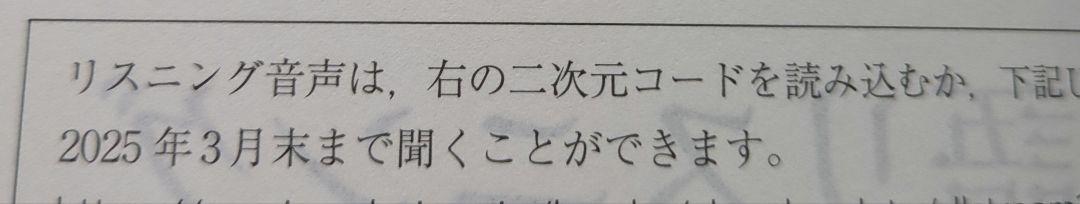 リスニング音声は，右の二次元コードを読み込むか，下記U
2025年3月末まで聞くことができます。